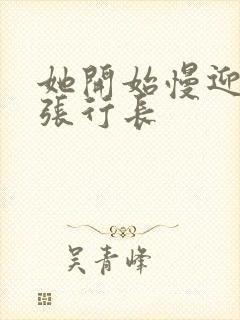 她開始慢迎
張行長
吴青峰